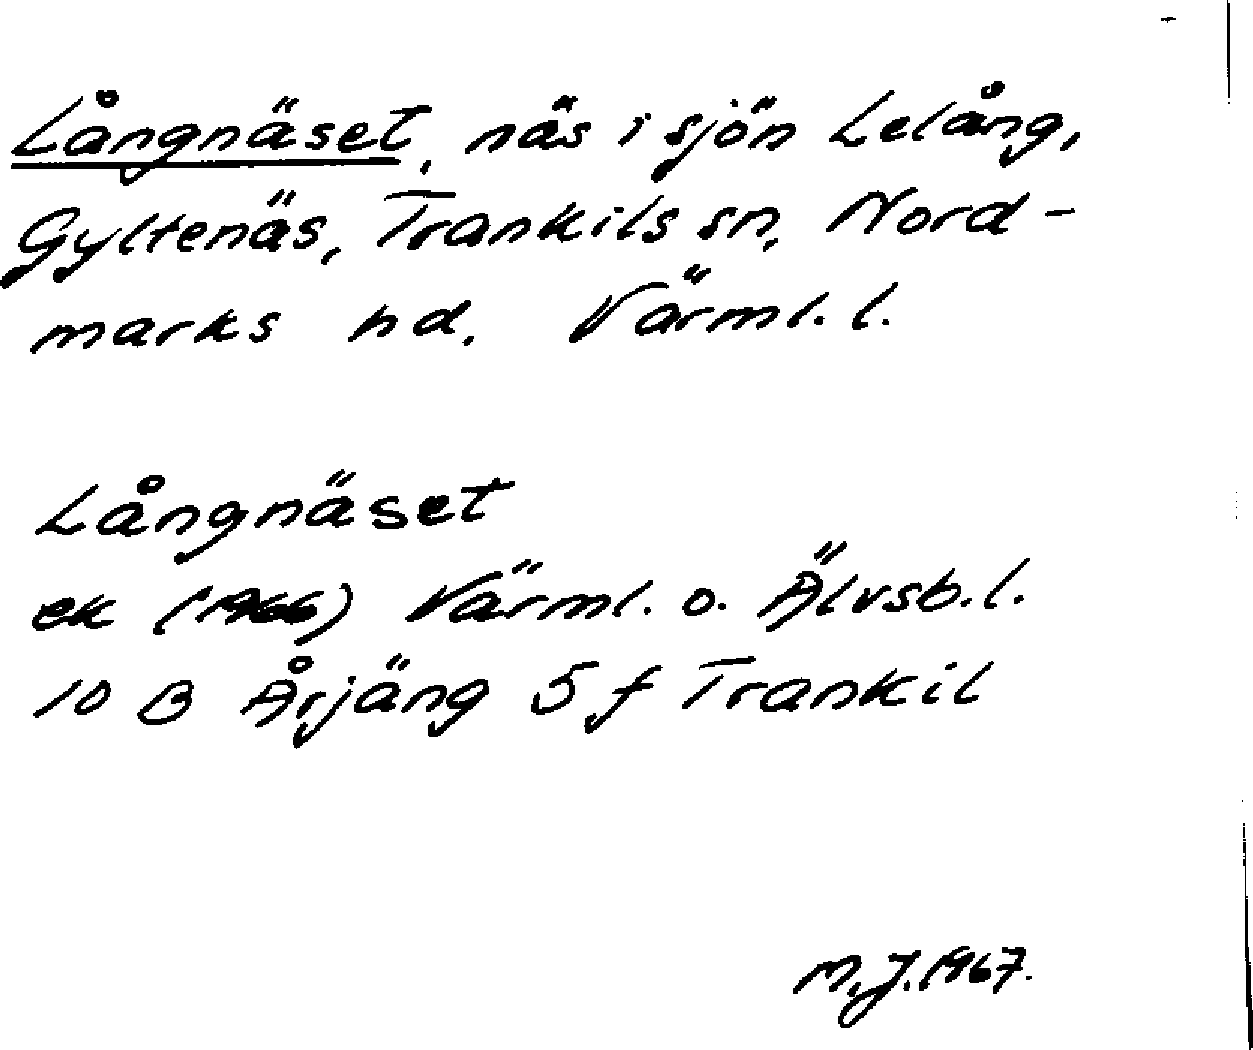 Långnäset, näs i sjön Lelång,
Gyltenäs, Trankils sn, Nord-
marks hd. Värml. l.
Långnäset
ek (1966) Värml. o. Älvsb. l.
10 B Årjäng 5 f Trankil
M.J. 1967.